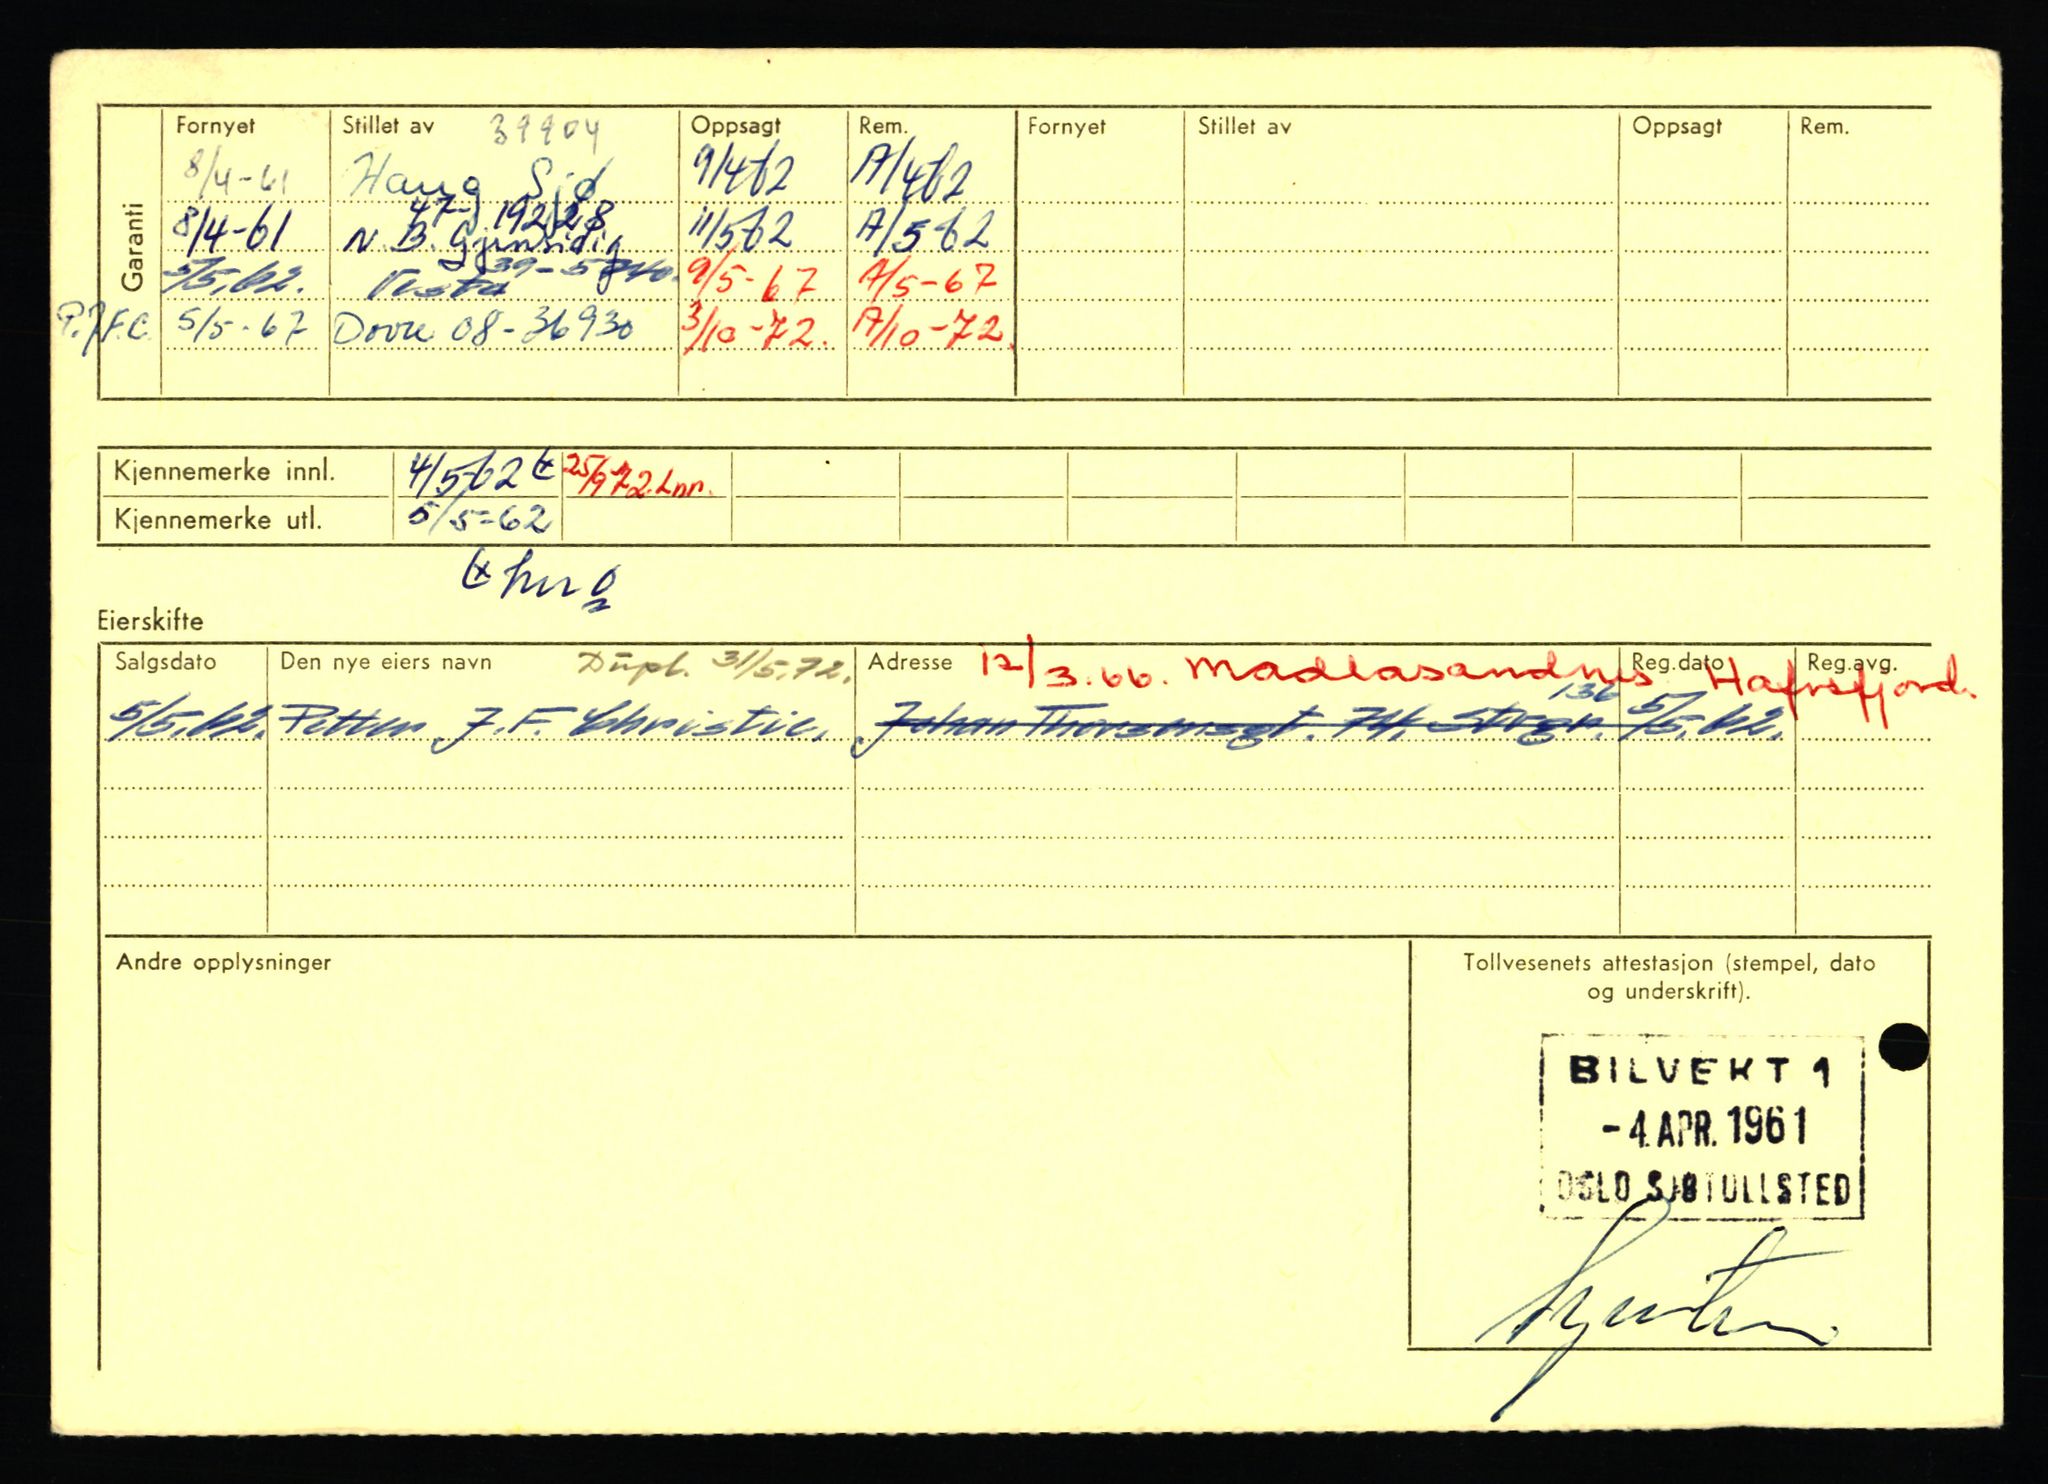 Garanti
Fornyet Stillet av 39904 Oppsagt Rem. Fornyet Stillet av Oppsagt Rem.
8/4-61 Haug Sjø 9/4-62 A/4-62
47-19228
8/4-61 N. B. Gjensidig 11/5-62 A/5-62
39-5
5/5.62. Vesta 9/5-67 A/5-67
P.J.F.C. 5/5-67 Dovre 08-36930 3/10-72. A/10-72.
Kjennemerke innl. 4/5-62 (x 25/9 72. Lnr.
Kjennemerke utl. 5/5-62
(x
Eierskifte
Salgsdato Den nye eiers navn Dupl. 31/5.72. Adresse 12/3.66. Madlasandnes Hafrsfjord. Reg.dato Reg.avg.
136
5/5.62. Petter J.F. Christie. Johan Thorsensgt. 74. Stvgr. 5/5.62.
Andre opplysninger
Tollvesenets attestasjon (stempel, dato
og underskrift).
BILVEKT 1
-4.APR.1961
OSLO SJØTOLLSTED